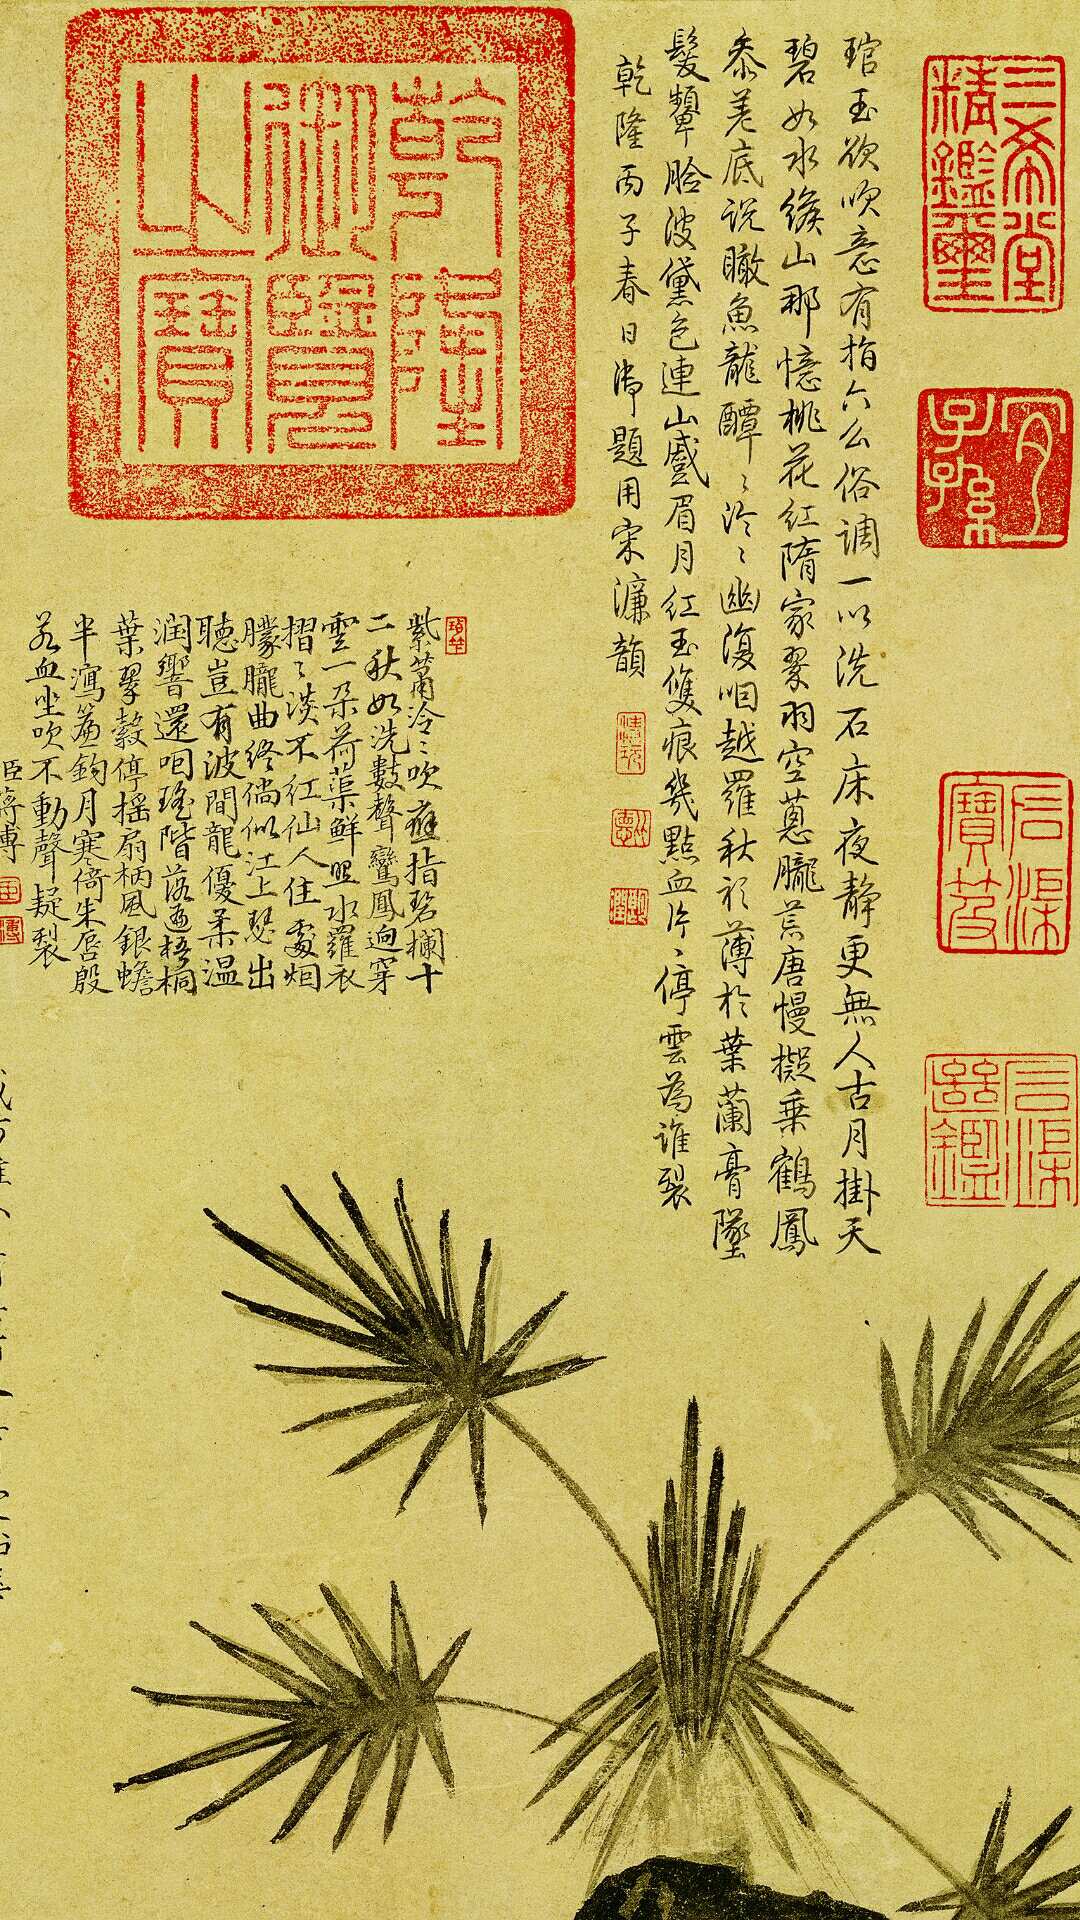 三希堂精鑑璽
宜子孫
石渠寶笈
石渠繼鑑
琯玉欲吹意有指六么俗調一以洗石床夜静更無人古月掛天
碧如水緱山那憶桃花紅隋家翠羽空蔥朧荒唐慢擬乘鶴鳳
參差底說瞰魚龍醰〻泠〻幽復咽越羅秋衫薄於葉蘭膏墜
髮顰脸波黛色連山蹙眉月紅玉雙痕幾點血片〻停雲為誰裂
乾隆丙子春日御題用宋濂韻
乾隆御覽之寶
紫簫泠〻吹玉指碧欄十
二秋如洗數聲鸞鳳迥穿
雲一朵荷蕖鮮照水羅衣
摺〻淡不紅仙人住處烟
朦朧曲終倘似江上瑟出
聽豈有波間龍優柔温
潤響還咽瑤階落遍梧桐
葉翠縠停搖扇柄風銀蟾
半瀉簾鉤月寒倚朱唇殷
若血坐吹不動聲疑裂
臣蔣溥